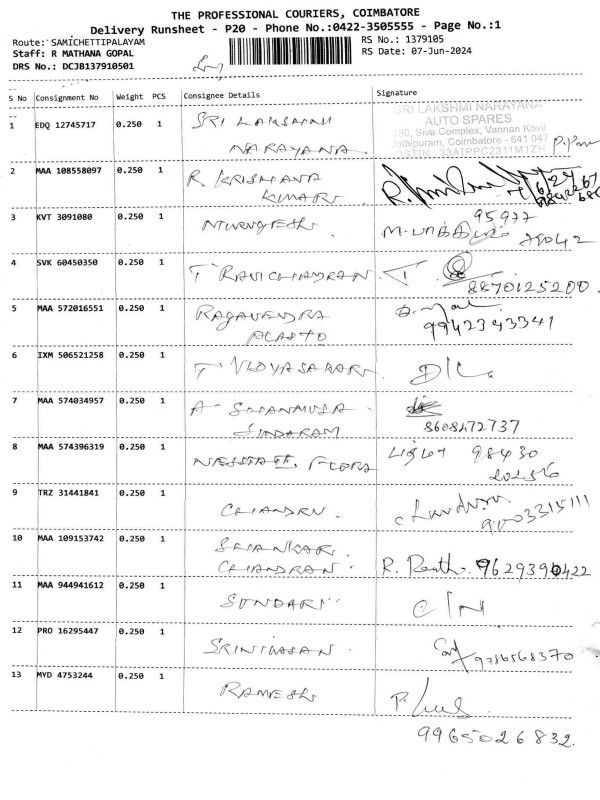 THE PROFESSIONAL COURIERS, COIMBATORE
Delivery Runsheet - P20 - Phone No.:0422-3505555 - Page No.:1
Route: SAMICHETTIPALAYAM
RS No.: 1379105
Staff: R MATHANA GOPAL
RS Date: 07-Jun-2024
DRS No.: DCJB137910501
S No Consignment No Weight PCS Consignee Details Signature
1 EDQ 12745717 0.250 1 SRI LAKSHMI
NARAYANA
SRI LAKSHMI NARAYANA
AUTO SPARES
Siva Complex, Vannan Kovil
Coimbatore - 641 047
2 MAA 108558097 0.250 1 R KRISHANA
KUMAR
3 KVT 3091080 0.250 1
95977
4 SVK 60450350 0.250 1 T RAVICHANDRAN T
8870125200
5 MAA 572016551 0.250 1 RAGAVENDRA
PLASTO
9942343341
6 IXM 506521258 0.250 1 T VIDYASAGAR D/L
7 MAA 574034957 0.250 1 A SHANMUGA
SUNDARAM
8608472737
8 MAA 574396319 0.250 1 FLORA
98430
9 TRZ 31441841 0.250 1 CHANDRU
9003315111
10 MAA 109153742 0.250 1 SHANKAR
CHANDRAN
R.
11 MAA 944941612 0.250 1 SUNDARI C/N
12 PRO 16295447 0.250 1 SRINIVASAN
9786568370
13 MYD 4753244 0.250 1 RAMESH
9965026832